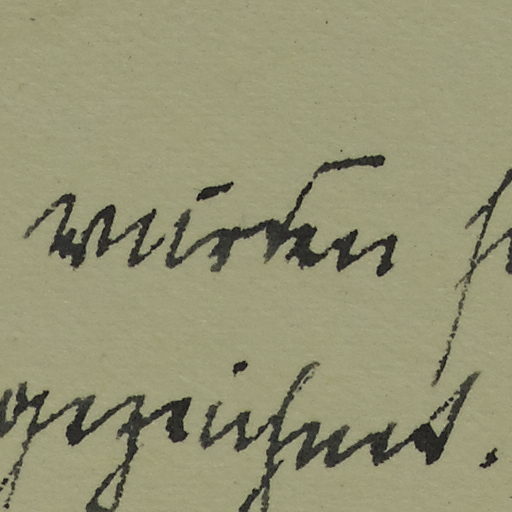 wurden
gezeichnet.